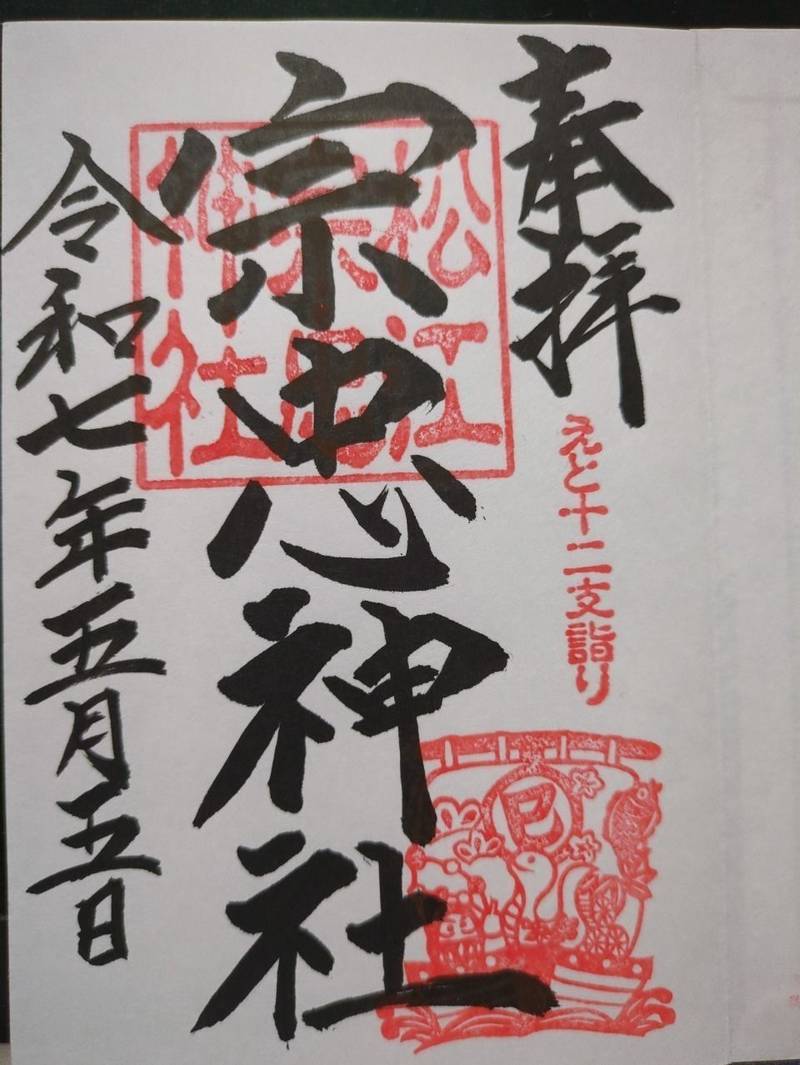 奉拝
えと十二支詣り
巳
松江
宗忠
神社
宗忠神社
令和七年五月五日